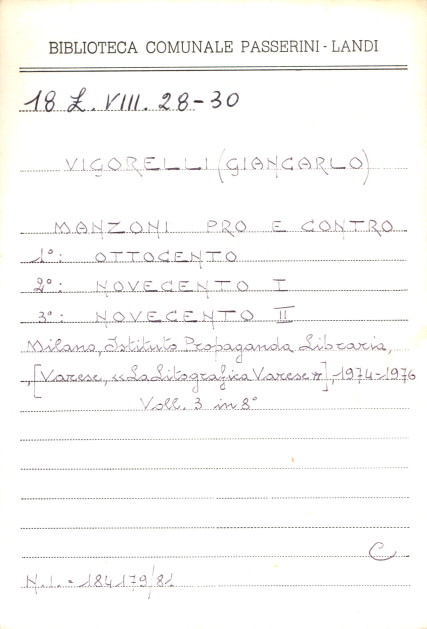 BIBLIOTECA COMUNALE PASSERINI - LANDI
18 Z. VIII. 28-30
VIGORELLI (GIANCARLO)
MANZONI PRO E CONTRO
1°: OTTOCENTO
2°: NOVECENTO I
3°: NOVECENTO II
Milano, Istituto Propaganda Libraria,
[Varese, «La Litografica Varese»], 1974-1976
Voll. 3 in 8°
C
N.I. - 184179/81